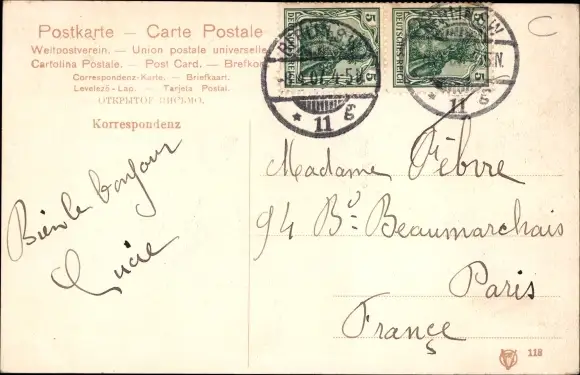 Postkarte — Carte Postale
Weltpostverein. — Union postale universelle
Cartolina Postale. — Post Card. — Brefkor
Correspondenz-Karte. — Briefkaart.
Levelező-Lap. — Tarjeta Postal.
ОТКРЫТОЕ ПИСЬМО.
Korrespondenz
C
5 5
DEUTSCHES REICH
BERLIN S.W.
4-5N.
* 11 g
BERLIN S.W.
N.
* 11 g
Bien le bonjour
Lucie
Madame Fèbvre
94 Bd. Beaumarchais
Paris
France
118